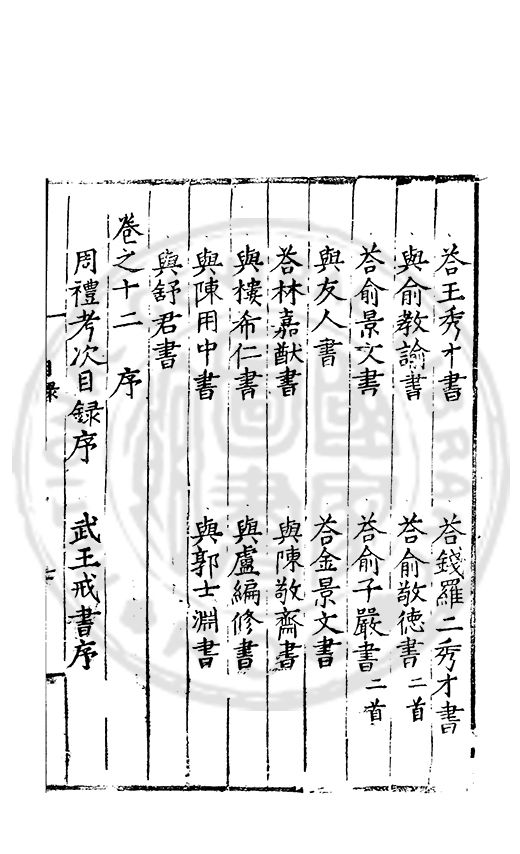 荅王秀才書　荅錢羅二秀才書
與俞教諭書　荅俞敬德書二首
荅俞景文書　荅俞子嚴書二首
與友人書　荅金景文書
荅林嘉猷書　與陳敬齋書
與樓希仁書　與盧編修書
與陳用中書　與郭士淵書
與舒君書
卷之十二　序
周禮考次目録序　武王戒書序
目錄